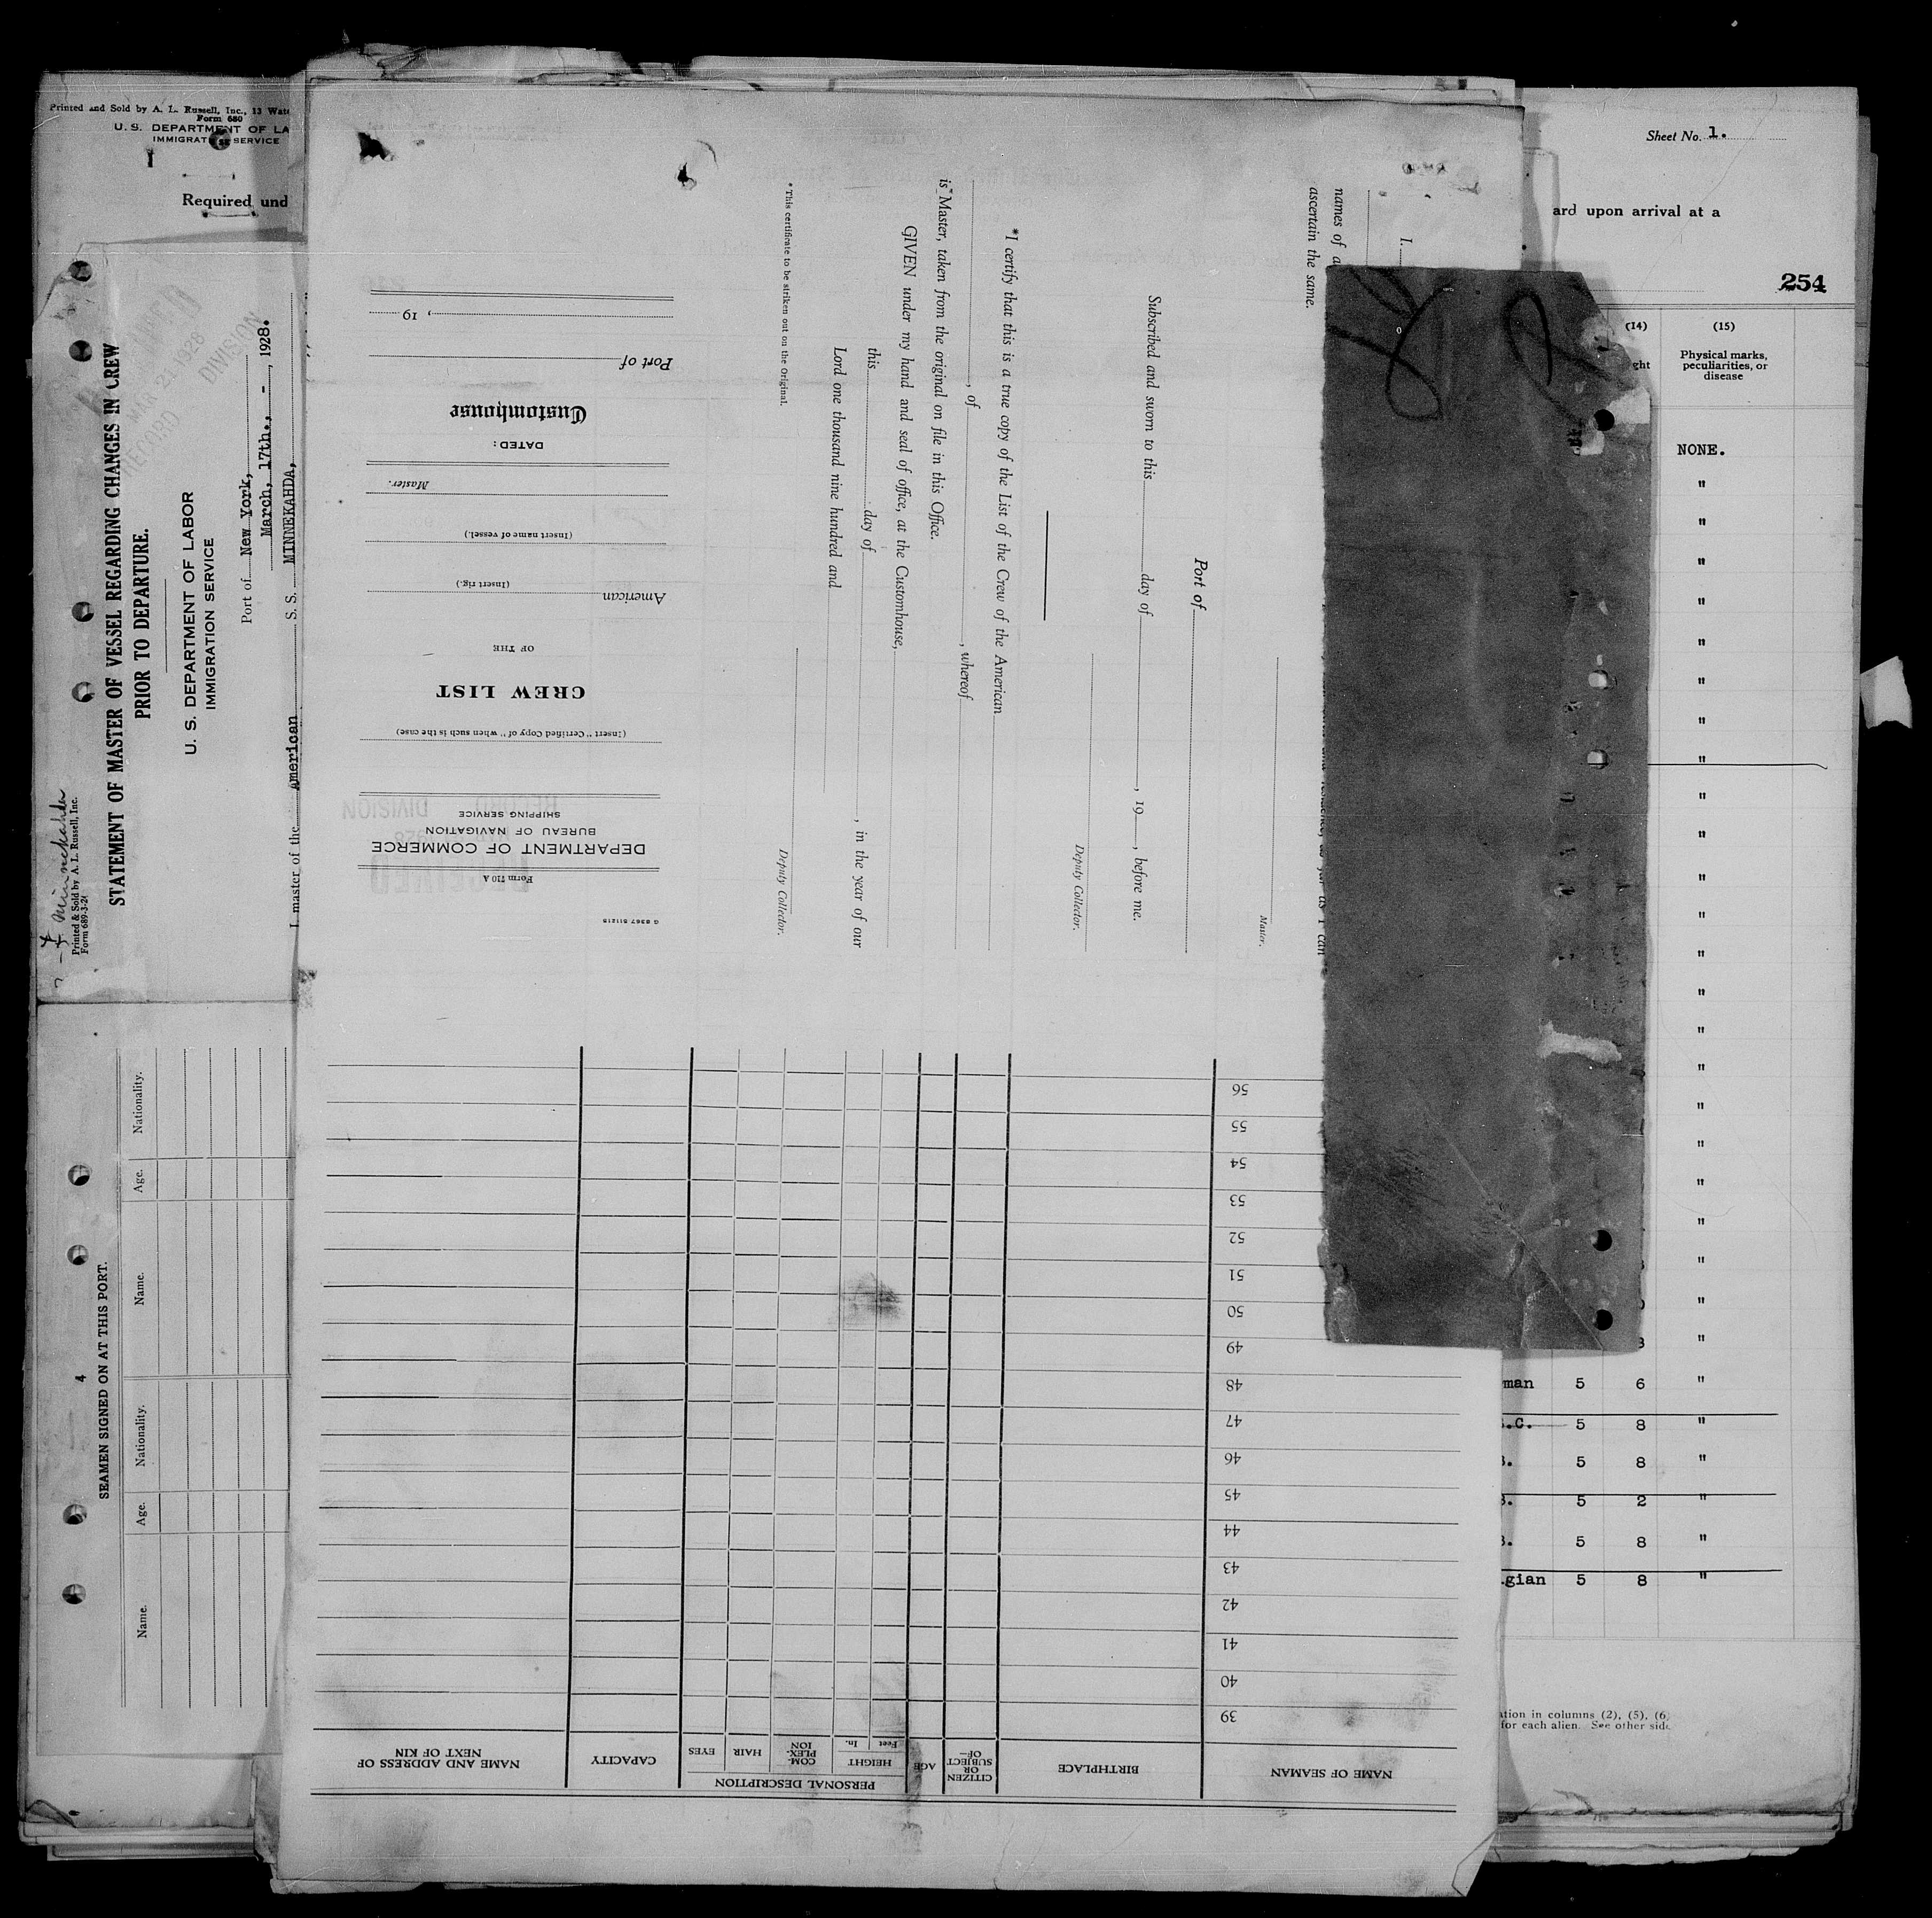 Printed and Sold by A. L. Russell, Inc., 13 Wate
Form 680
U. S. DEPARTMENT OF LA
IMMIGRAT SERVICE
Required und
Minnekahda
Printed & Sold by A. L. Russell, Inc.
Form 689-3-2
STATEMENT OF MASTER OF VESSEL REGARDING CHANGES IN CREW
PRIOR TO DEPARTURE.
U. S. DEPARTMENT OF LABOR
IMMIGRATION SERVICE
MAR 21 1928
RECORD
DIVISION
Port of New York,
March, 17th., - , 1928.
I, master of the American S. S. MINNEKAHDA,
4
SEAMEN SIGNED ON AT THIS PORT.
Name. Age. Nationality. Name. Age. Nationality.
I.
names of a
ascertain the same.
as far as I can
Master.
Port of
Subscribed and sworn to this day of , 19 , before me.
Deputy Collector.
*I certify that this is a true copy of the List of the Crew of the American
, of , whereof
is Master, taken from the original on file in this Office.
GIVEN under my hand and seal of office, at the Customhouse,
this day of , in the year of our
Lord one thousand nine hundred and
Deputy Collector.
* This certificate to be striken out on the original.
G 8367 511215
Form 710 A
DEPARTMENT OF COMMERCE
BUREAU OF NAVIGATION
SHIPPING SERVICE
RECEIVED
1928
RECORD
DIVISION
(Insert "Certified Copy of" when such is the case)
CREW LIST
OF THE
American
(Insert rig.)
(Insert name of vessel.)
Master.
DATED:
Customhouse
Port of
, 19
NAME OF SEAMAN BIRTHPLACE CITIZEN OR SUBJECT OF— AGE PERSONAL DESCRIPTION CAPACITY NAME AND ADDRESS OF NEXT OF KIN
HEIGHT COMPLEXION HAIR EYES
Feet In.
39
40
41
42
43
44
45
46
47
48
49
50
51
52
53
54
55
56
Sheet No. 1.
ard upon arrival at a
254
(14) (15)
ght Physical marks,
peculiarities, or
disease
NONE.
"
"
"
"
"
"
"
"
"
"
"
"
"
"
"
"
"
"
"
"
"
"
"
"
man 5 6 "
.C. 5 8 "
. 5 8 "
. 5 2 "
. 5 8 "
gian 5 8 "
ation in columns (2), (5), (6
for each alien. See other side